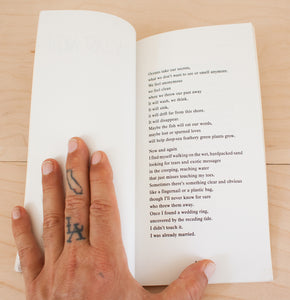 Oceans take our secrets,
what we don't want to see or smell anymore.
We feel anonymous
we feel clean
when we throw our past away
It will wash, we think,
it will sink,
it will drift far from this shore.
It will disappear.
Maybe the fish will eat our words,
and/or lost or spurned loves
will help deep-sea feathery green plants grow.
Now and again
I find myself walking on the wet, hardpacked sand
looking for tears and exotic messages
in the creeping, reaching water
that just misses touching my toes.
Sometimes there's something clear and obvious
like a flugernail or a plastic bag,
though I'll never know for sure
who threw them away.
Once I found a wedding ring,
uncovered by the receding tide.
I didn't touch it.
I was already married.
LA